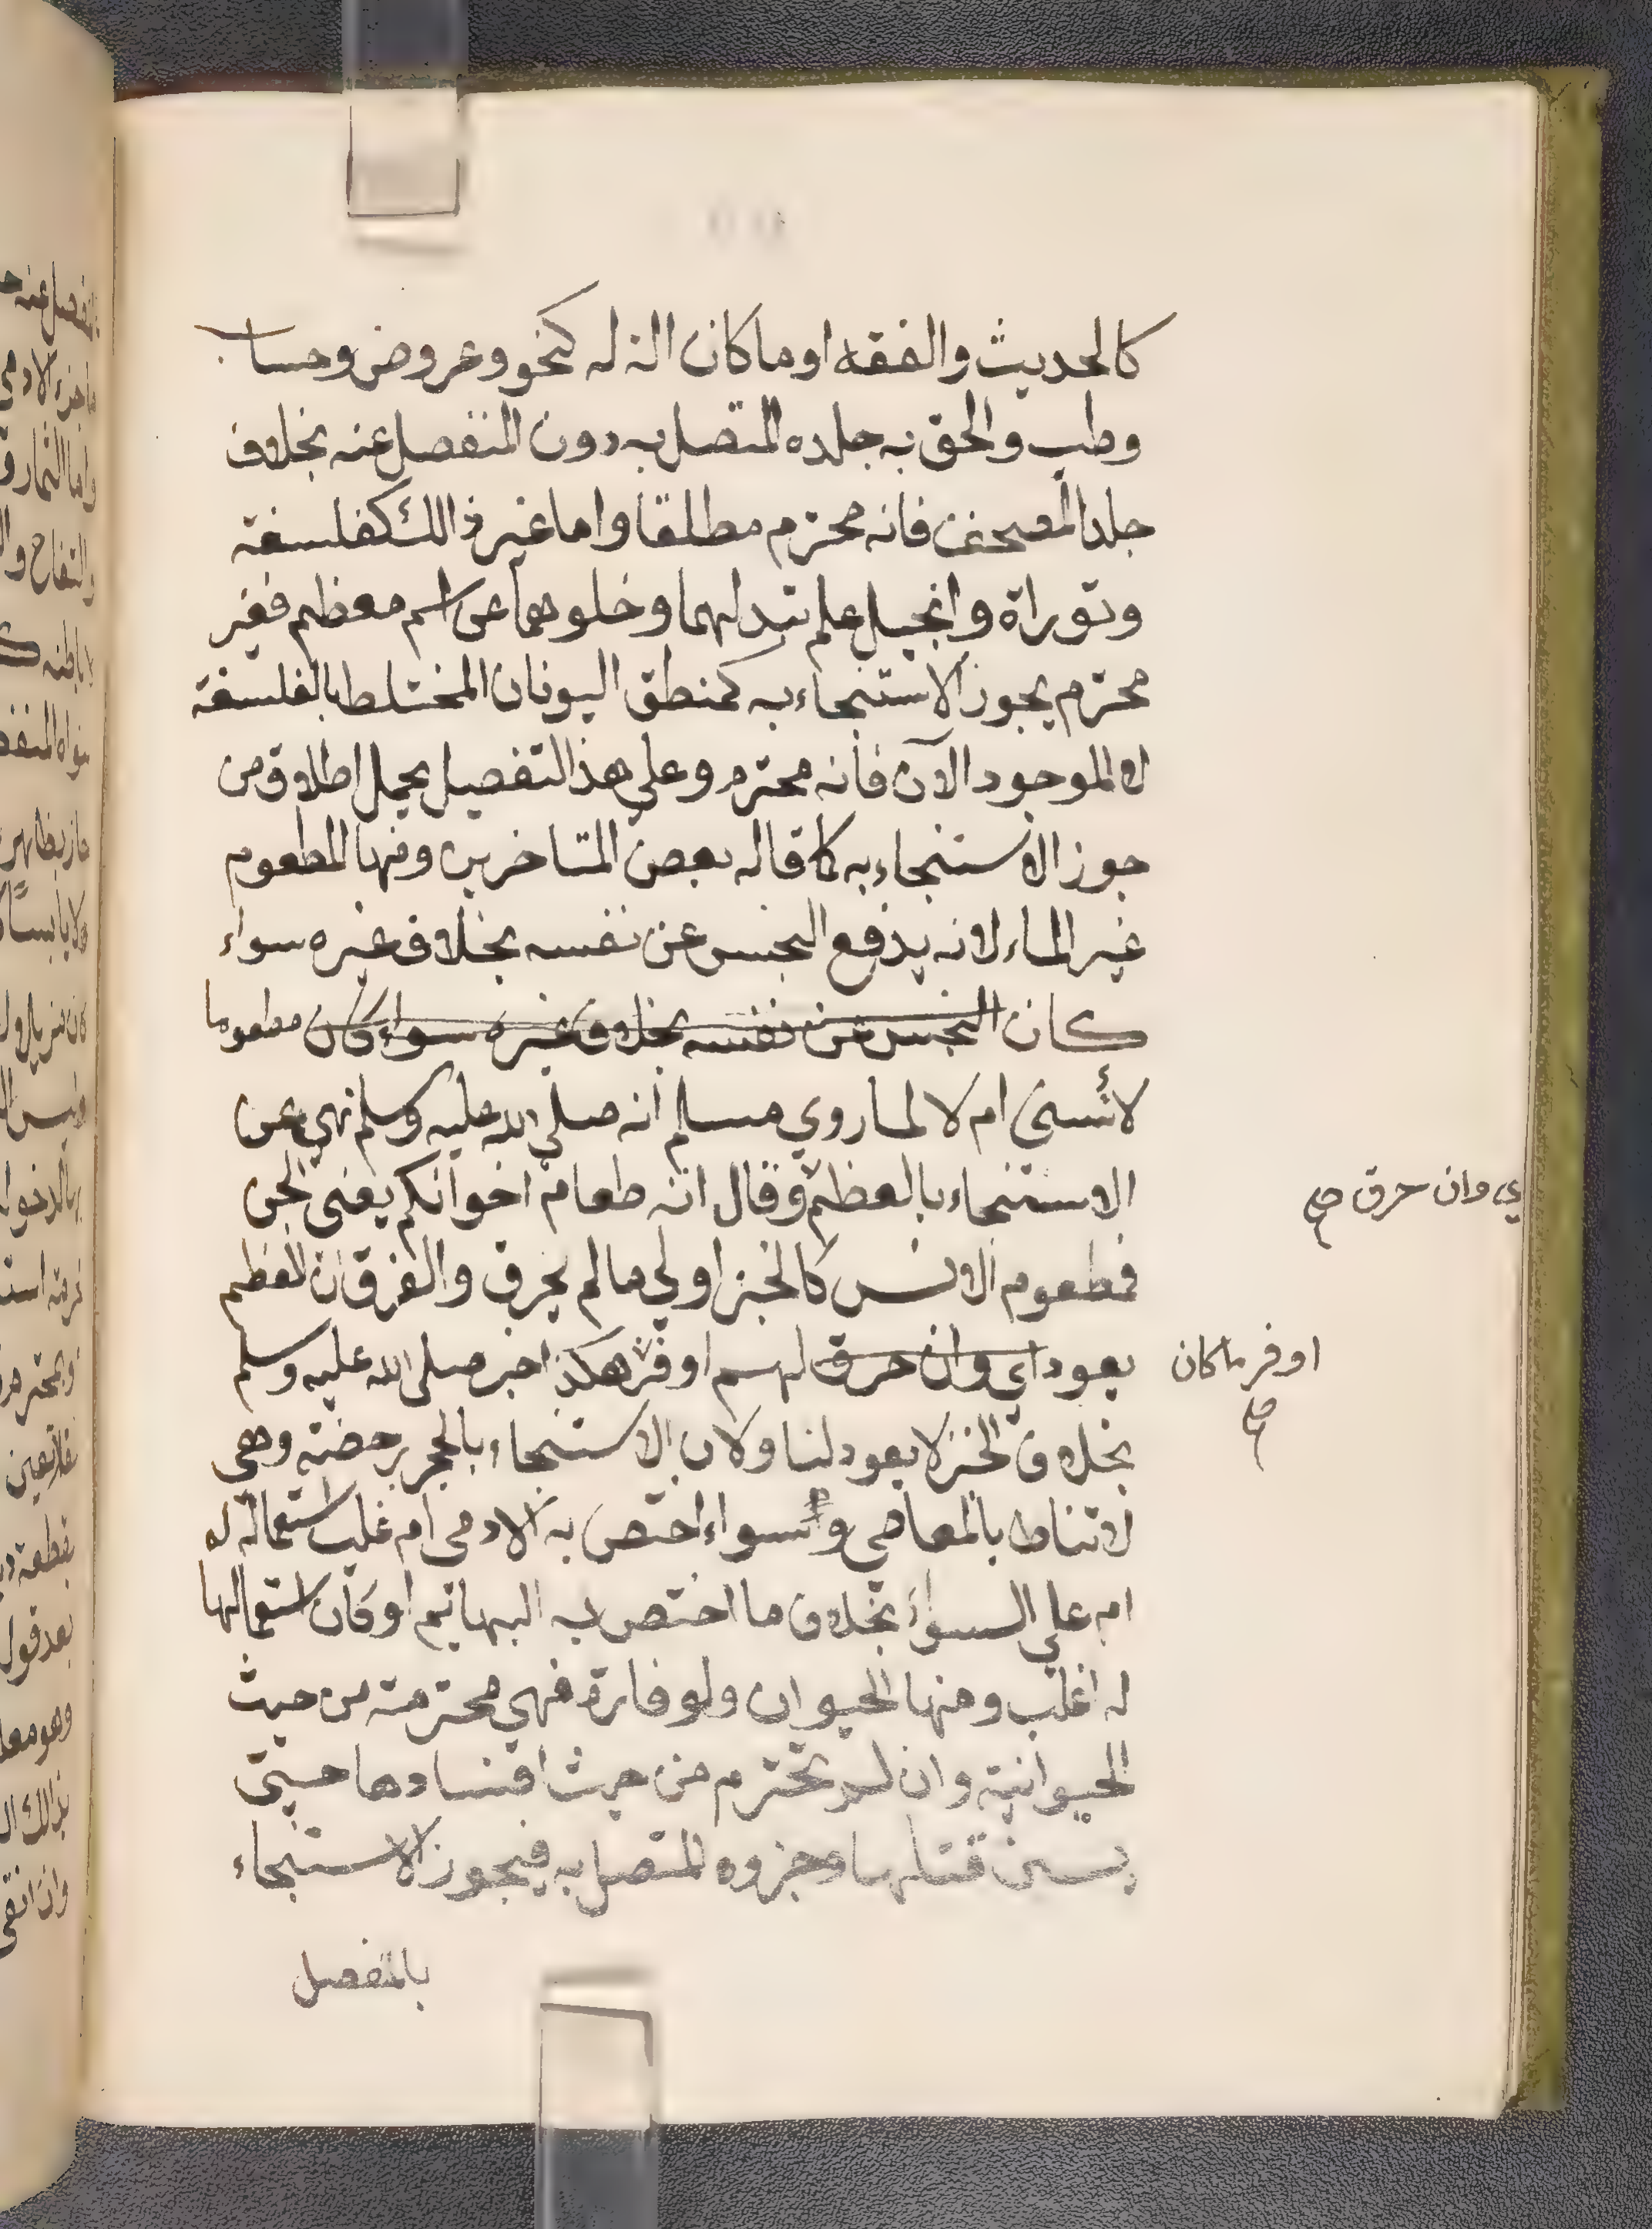 كالحديث والفقه او ما كان الة له كنحو وعروض وحساب
وطب والحق به جلده المتصل به دون المنفصل عنه بخلاف
جلد المصحف فانه محترم مطلقا واما غير ذالك كفلسفة
وتوراة وانجيل علم تبدلهما وخلوهما عن اسم معظم فغير
محترم يجوز الاستنجاء به كمنطق اليونان المختلط بالفلسفة
لا الموجود الآن فانه محترم وعلي هذا التفصيل يحمل اطلاق من
جوز الاستنجاء به كما قاله بعض المتاخرين ومنها المطعوم
غير الماء لانه يدفع النجس عن نفسه بخلاف غيره سواء
كان النجس عن نفسه بخلاف غيره سواء كان مطعوما
لأنسي ام لا لما روي مسلم انه صلي الله عليه وسلم نهي عن
الاستنجاء بالعظم وقال انه طعام اخوانكم يعني الجن
فمطعوم الانس كالخبز اولي ما لم يحرق والفرق ان العظم
يعود اي وان حرق لهم اوفر هكذا اخبر صلي الله عليه وسلم
بخلاف الخبز لا يعود لنا ولان الاستنجاء بالحجر رخصة وهي
لا تناط بالمعاصي وسواء اختص به الادمي ام غلب استعماله له
ام علي السواء بخلاف ما اختص به البهائم او كان استعمالها
له اغلب ومنها الحيوان ولو فارة فهي محترمة من حيث
الحيوانية وان لم تحترم من حيث افسادها حيث
يسن قتلها وجزوه المتصل به فيجوز الاستنجاء
بالمنفصل
ي وان حرق صح
اوفر ما كان
صح